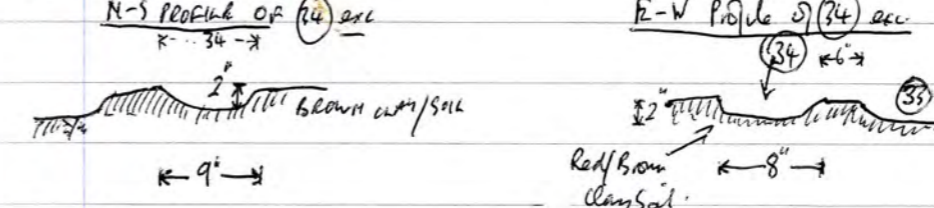 N-S PROFILE OF (34) exc
34
2"
BROWN CLAY/SOIL
9"
E-W Profile of (34) exc.
(34) 6"
2" (35)
Red/Brown
Clay Soil.
8"